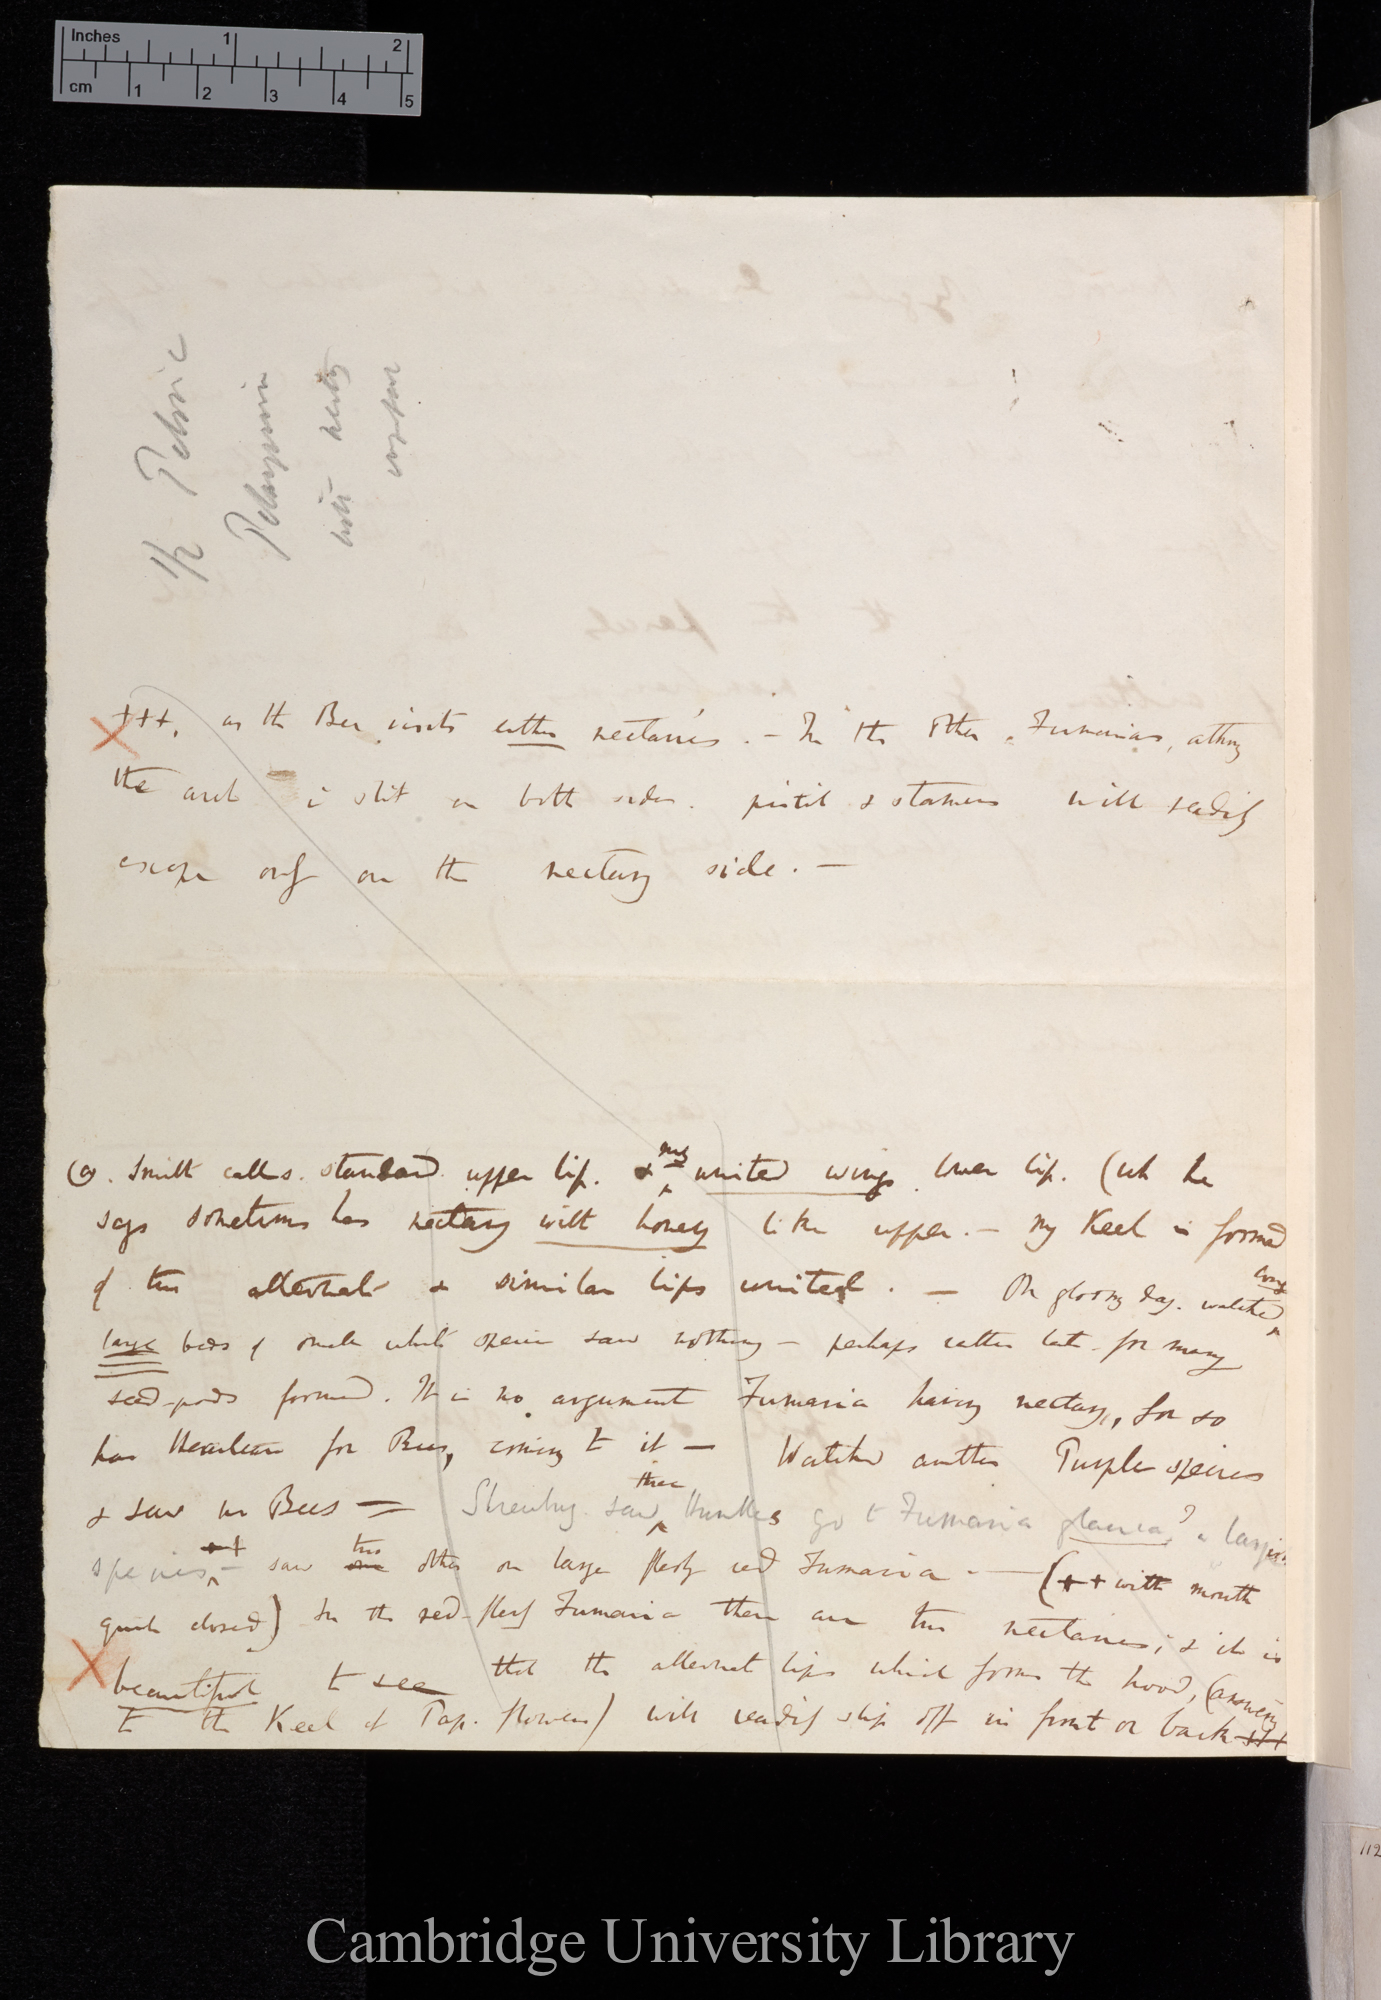 Inches 1 2
cm 1 2 3 4 5
Peloric
Pelargonium
with nectary
+++, as the Bee visits either nectaries. — In the other Fumarias,
the arch is slit on both sides. pistil & stamens will readily
escape only on the nectary side. —
(a). Smith calls standard upper lip. & my united wings lower lip. (wh he
says sometimes has nectary with honey like upper. — my Keel is formed
of two alternate & similar lips united. — On gloomy day. watched long
large beds of small white species saw nothing — perhaps rather late for many
seed-pods formed. It is no argument Fumaria having nectary, for so
has for Bees, coming to it — Watched another Purple species
& saw no Bees — Strawberry saw three Humbles go to Fumaria glauca? a large
species, ++ saw two other on large fleshy red Fumaria. — (++ with mouth
quite closed) In the red-fleshy Fumaria there are two nectaries; & it is
beautiful to see that the alternate lips which forms the hood, (answering
to the Keel of Pap. flowers) will readily slip off in front or back +++
112
Cambridge University Library